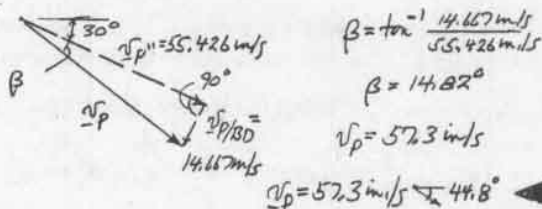 30°
v_p'' = 55.426 in/s
β
90°
v_p
v_P/BD =
14.667 in/s
β = tan⁻¹ 14.667 in/s / 55.426 in/s
β = 14.82°
v_p = 57.3 in/s
v_p = 57.3 in./s 44.8°